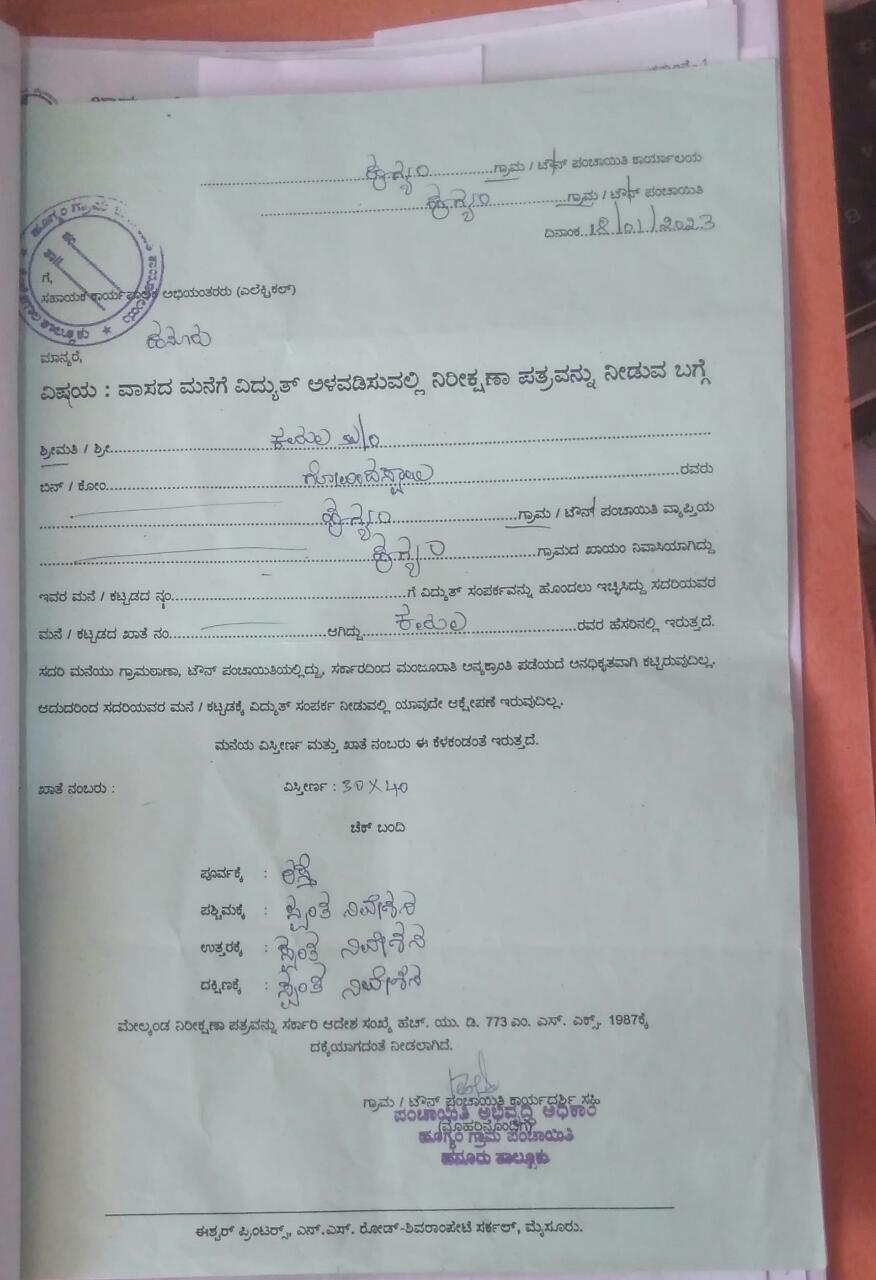 ಹೂಗ್ಯಂ ಗ್ರಾಮ / ಟೌನ್ ಪಂಚಾಯಿತಿ ಕಾರ್ಯಾಲಯ
ಹೂಗ್ಯಂ ಗ್ರಾಮ / ಟೌನ್ ಪಂಚಾಯಿತಿ
ದಿನಾಂಕ..18/01/2023
ಗೆ,
ಸಹಾಯಕ ಕಾರ್ಯಪಾಲಕ ಅಭಿಯಂತರರು (ಎಲೆಕ್ಟ್ರಿಕಲ್)
ಹನೂರು
ಮಾನ್ಯರೆ,
ವಿಷಯ : ವಾಸದ ಮನೆಗೆ ವಿದ್ಯುತ್ ಅಳವಡಿಸುವಲ್ಲಿ ನಿರೀಕ್ಷಣಾ ಪತ್ರವನ್ನು ನೀಡುವ ಬಗ್ಗೆ
ಶ್ರೀಮತಿ / ಶ್ರೀ
ಬಿನ್ / ಕೋಂ ರವರು
ಹೂಗ್ಯಂ ಗ್ರಾಮ / ಟೌನ್ ಪಂಚಾಯಿತಿ ವ್ಯಾಪ್ತಿಯ
ಹೂಗ್ಯಂ ಗ್ರಾಮದ ಖಾಯಂ ನಿವಾಸಿಯಾಗಿದ್ದು
ಇವರ ಮನೆ / ಕಟ್ಟಡದ ನಂ ಗೆ ವಿದ್ಯುತ್ ಸಂಪರ್ಕವನ್ನು ಹೊಂದಲು ಇಚ್ಛಿಸಿದ್ದು ಸದರಿಯವರ
ಮನೆ / ಕಟ್ಟಡದ ಖಾತೆ ನಂ ಆಗಿದ್ದು ರವರ ಹೆಸರಿನಲ್ಲಿ ಇರುತ್ತದೆ.
ಸದರಿ ಮನೆಯು ಗ್ರಾಮಠಾಣಾ, ಟೌನ್ ಪಂಚಾಯಿತಿಯಲ್ಲಿದ್ದು, ಸರ್ಕಾರದಿಂದ ಮಂಜೂರಾತಿ ಅನ್ಯಕ್ರಾಂತಿ ಪಡೆಯದೆ ಅನಧಿಕೃತವಾಗಿ ಕಟ್ಟಿರುವುದಿಲ್ಲ.
ಆದುದರಿಂದ ಸದರಿಯವರ ಮನೆ / ಕಟ್ಟಡಕ್ಕೆ ವಿದ್ಯುತ್ ಸಂಪರ್ಕ ನೀಡುವಲ್ಲಿ ಯಾವುದೇ ಆಕ್ಷೇಪಣೆ ಇರುವುದಿಲ್ಲ.
ಮನೆಯ ವಿಸ್ತೀರ್ಣ ಮತ್ತು ಖಾತೆ ನಂಬರು ಈ ಕೆಳಕಂಡಂತೆ ಇರುತ್ತದೆ.
ಖಾತೆ ನಂಬರು : ವಿಸ್ತೀರ್ಣ : 30 X 40
ಚೆಕ್ ಬಂದಿ
ಪೂರ್ವಕ್ಕೆ : ರಸ್ತೆ
ಪಶ್ಚಿಮಕ್ಕೆ : ಸ್ವಂತ ನಿವೇಶನ
ಉತ್ತರಕ್ಕೆ : ಸ್ವಂತ ನಿವೇಶನ
ದಕ್ಷಿಣಕ್ಕೆ : ಸ್ವಂತ ನಿವೇಶನ
ಮೇಲ್ಕಂಡ ನಿರೀಕ್ಷಣಾ ಪತ್ರವನ್ನು ಸರ್ಕಾರಿ ಆದೇಶ ಸಂಖ್ಯೆ ಹೆಚ್. ಯು. ಡಿ. 773 ಎಂ. ಎಸ್. ಎಕ್ಸ್. 1987ಕ್ಕೆ
ದಕ್ಕೆಯಾಗದಂತೆ ನೀಡಲಾಗಿದೆ.
ಗ್ರಾಮ / ಟೌನ್ ಪಂಚಾಯಿತಿ ಕಾರ್ಯದರ್ಶಿ ಸಹಿ
(ಮೊಹರಿನೊಂದಿಗೆ)
ಪಂಚಾಯಿತಿ ಅಭಿವೃದ್ಧಿ ಅಧಿಕಾರಿ
ಹೂಗ್ಯಂ ಗ್ರಾಮ ಪಂಚಾಯಿತಿ
ಹನೂರು ತಾಲ್ಲೂಕು
ಈಶ್ವರ್ ಪ್ರಿಂಟರ್ಸ್, ಎನ್.ಎಸ್. ರೋಡ್-ಶಿವರಾಂಪೇಟೆ ಸರ್ಕಲ್, ಮೈಸೂರು.